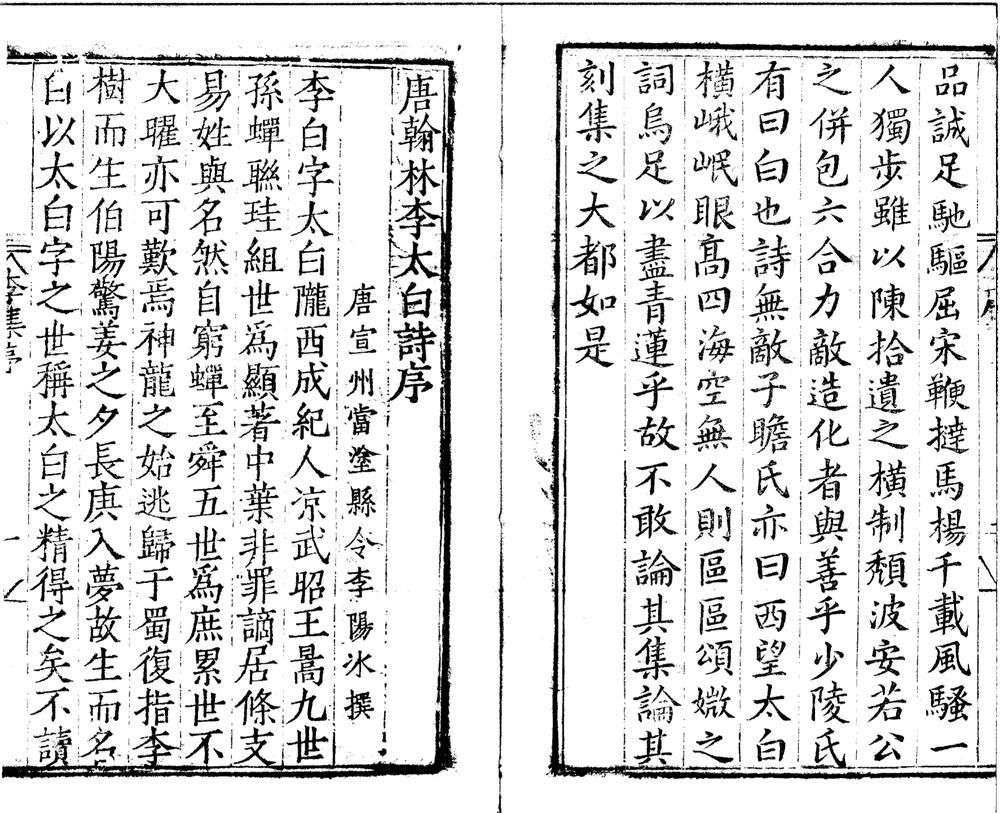 品誠足馳驅屈宋鞭撻馬楊千載風騷一
人獨步雖以陳拾遺之橫制頹波安若公
之併包六合力敵造化者與善乎少陵氏
有曰白也詩無敵子瞻氏亦曰西望太白
橫峨岷眼高四海空無人則區區頌媺之
詞烏足以盡青蓮乎故不敢論其集論其
刻集之大都如是
唐翰林李太白詩序
唐宣州當塗縣令李陽冰撰
李白字太白隴西成紀人凉武昭王暠九世
孫蟬聯珪組世爲顯著中葉非罪謫居條支
易姓與名然自窮蟬至舜五世爲庶累世不
大曜亦可歎焉神龍之始逃歸于蜀復指李
樹而生伯陽驚姜之夕長庚入夢故生而名
白以太白字之世稱太白之精得之矣不讀
李集序
一